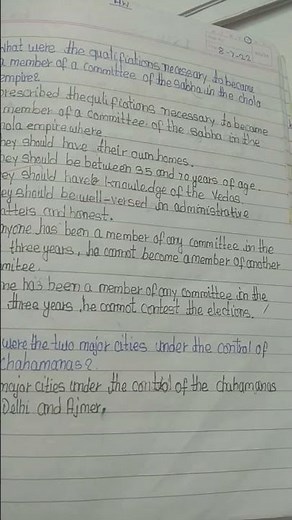 HW
8-7-22
what were the qualifications necessary to become
a member of a committee of the sabha in the chola
empire?
rescribed the qulifications necessary to become
member of a committee of the sabha in the
hola empire where
hey should have their own homes.
hey should be between 35 and 70 years of age
ey should have knowledge of the Vedas.
ey should be well-versed in administrative
atters and honest.
nyone has been a member of any committee in the
three years, he cannot become a member of another
mitee.
ne has been a member of any committee in the
three years, he cannot contest the elections.
were the two major cities under the control of
chahamanas?
major cities under the control of the chahamanas
Delhi and Ajmer.